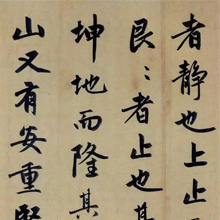 者静也上止
艮〻者止也其
坤地而隆其
山又有安重堅